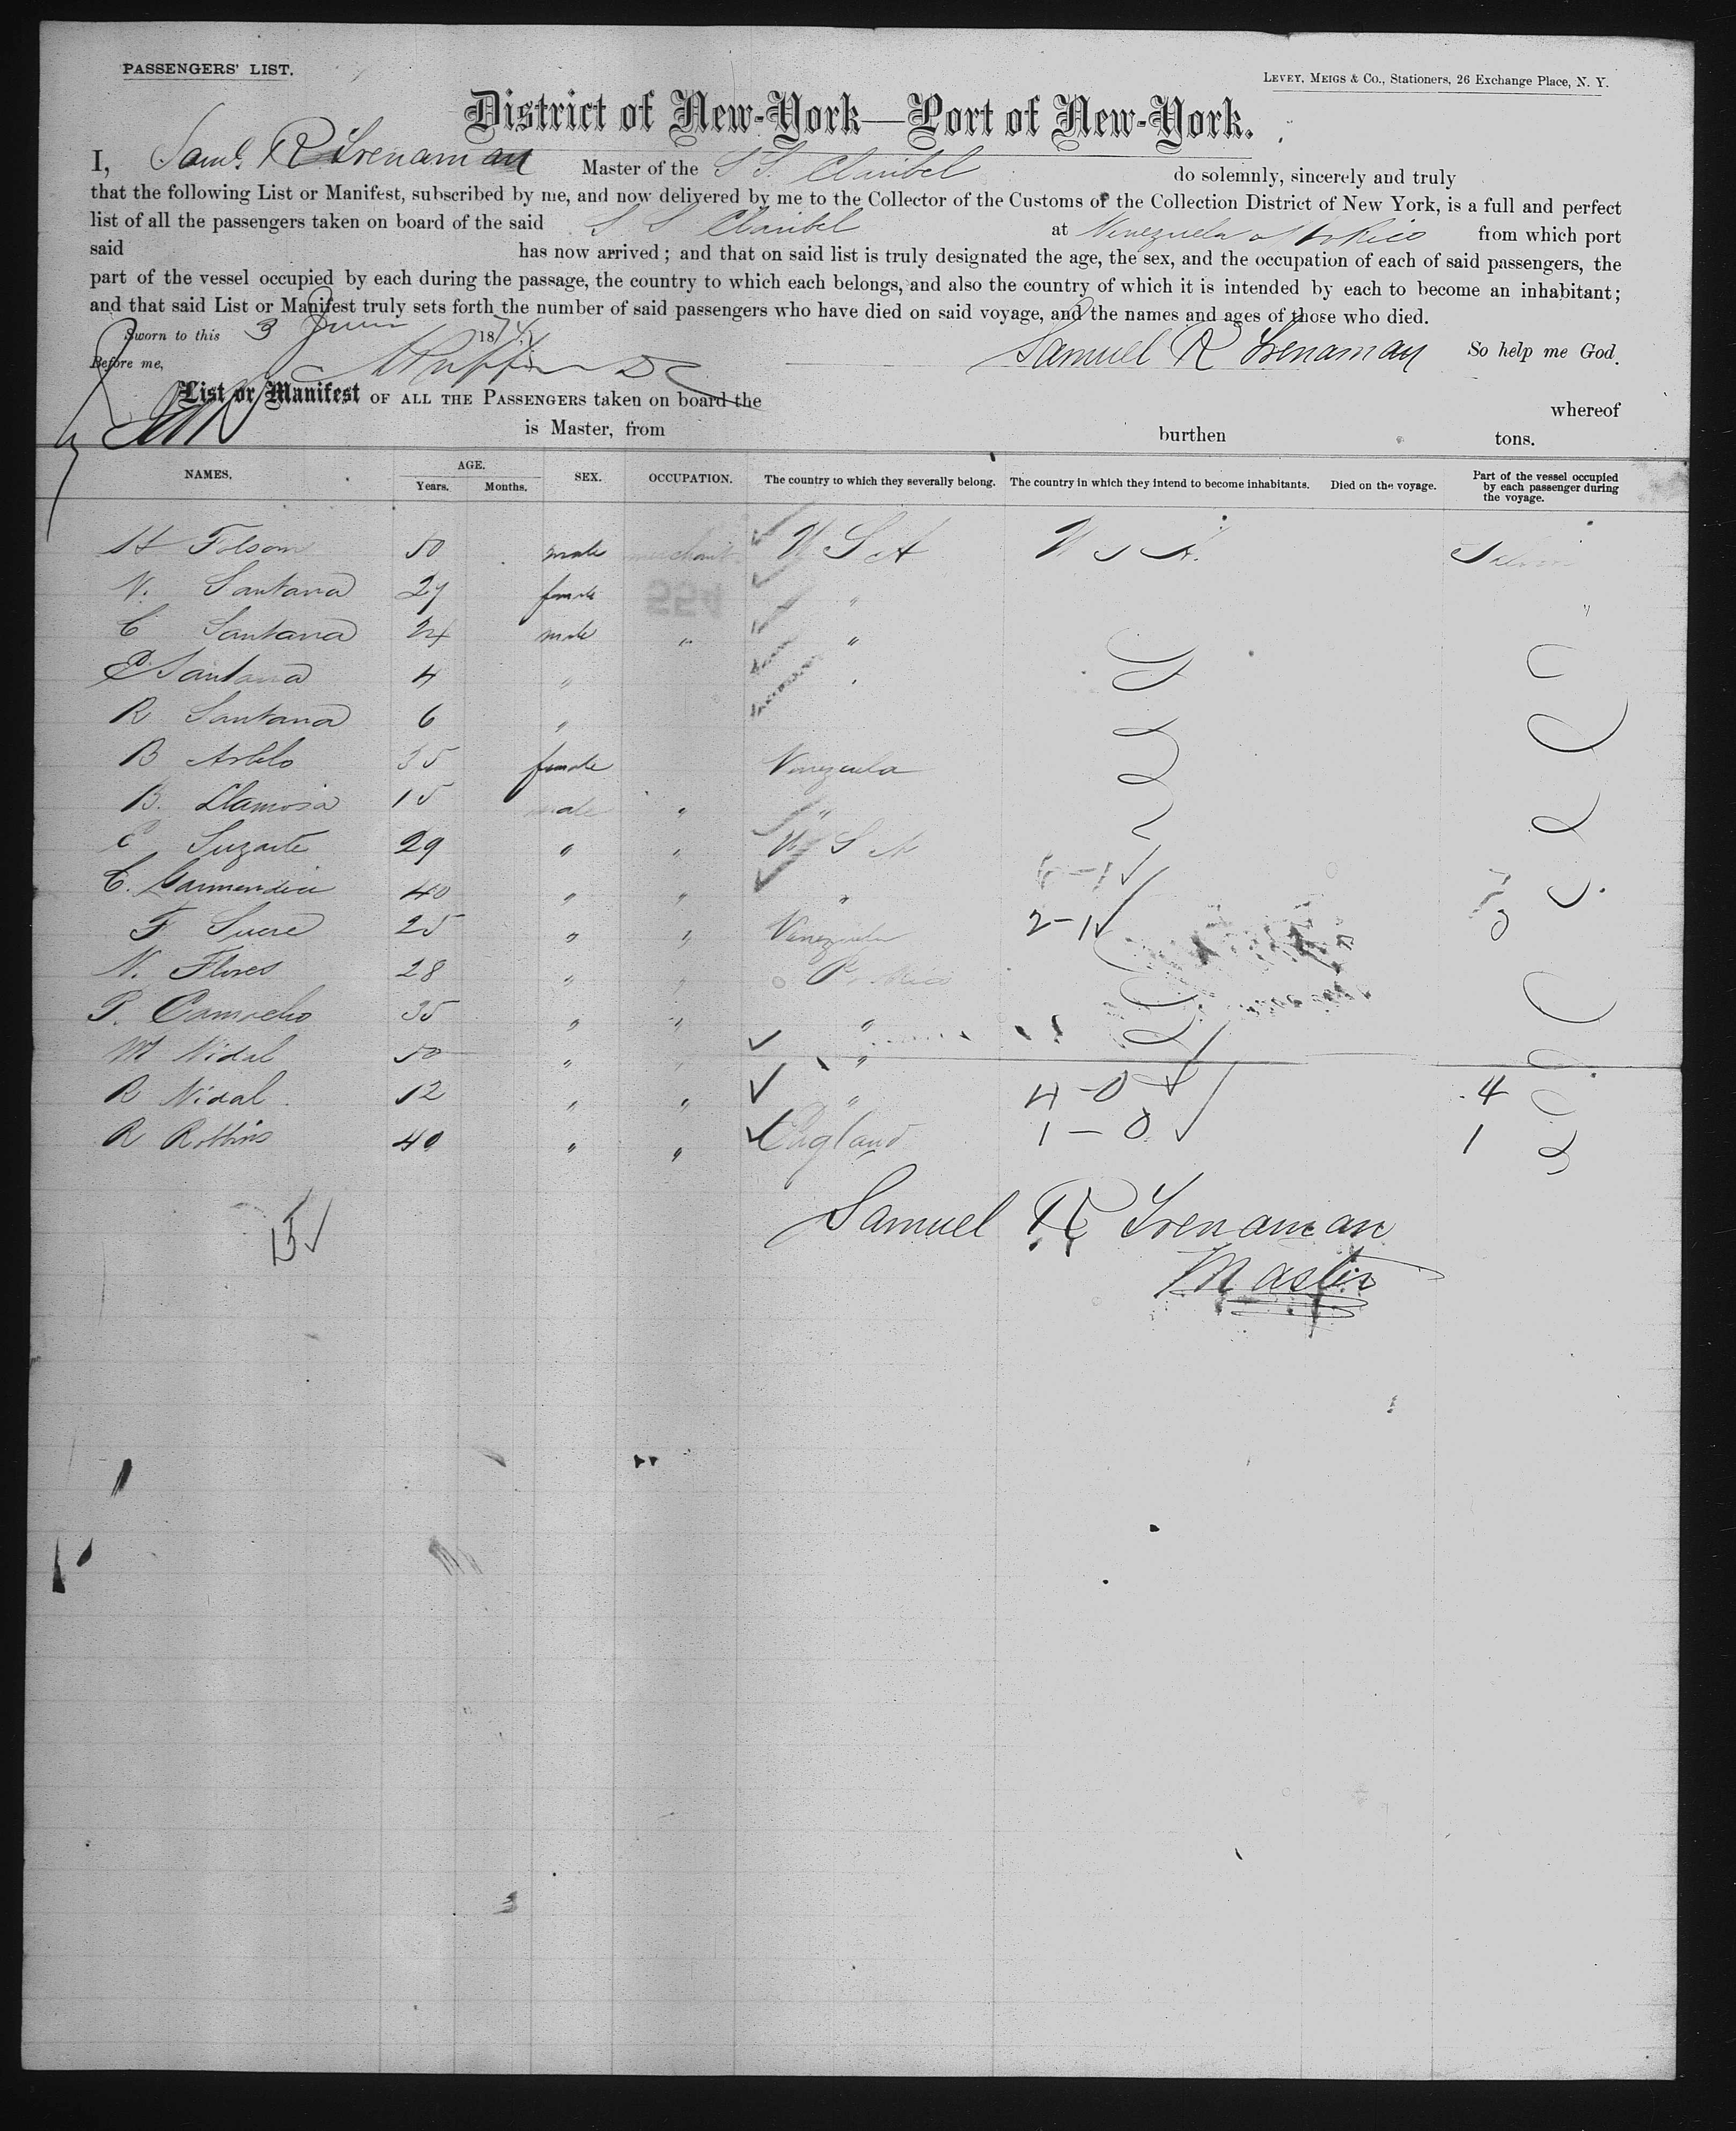 PASSENGERS' LIST.
LEVEY, MEIGS & CO., Stationers, 26 Exchange Place, N. Y.
District of New-York—Port of New-York.
I, Saml. R Trenaman Master of the S S. Claribel do solemnly, sincerely and truly
that the following List or Manifest, subscribed by me, and now delivered by me to the Collector of the Customs of the Collection District of New York, is a full and perfect
list of all the passengers taken on board of the said S S Claribel at Venezuela from which port
said has now arrived; and that on said list is truly designated the age, the sex, and the occupation of each of said passengers, the
part of the vessel occupied by each during the passage, the country to which each belongs, and also the country of which it is intended by each to become an inhabitant;
and that said List or Manifest truly sets forth the number of said passengers who have died on said voyage, and the names and ages of those who died.
Sworn to this 3 June 1874
Before me, Samuel R Trenaman So help me God.
List or Manifest OF ALL THE PASSENGERS taken on board the whereof
is Master, from burthen tons.
NAMES. AGE. Years. Months. SEX. OCCUPATION. The country to which they severally belong. The country in which they intend to become inhabitants. Died on the voyage. Part of the vessel occupied by each passenger during the voyage.
H Folsom 50 male merchant U S A U S A.
N. Santana 27 female "
C Santana 24 male " "
P Santana 4 "
R Santana 6 "
B Arblo 35 female Venezuela
B. Llamosa 15 male " "
E Suzarte 29 " " U S A
C. Garmendia 40 " " "
F Sucre 25 " " Venezuela 2-1
N. Flores 28 " " P. Rico
P. Camacho 35 " " "
M Vidal 50 " " "
R Vidal 12 " " " 4-0 4
R Robbins 40 " " England 1-0 1
15
Samuel R Trenaman
Master